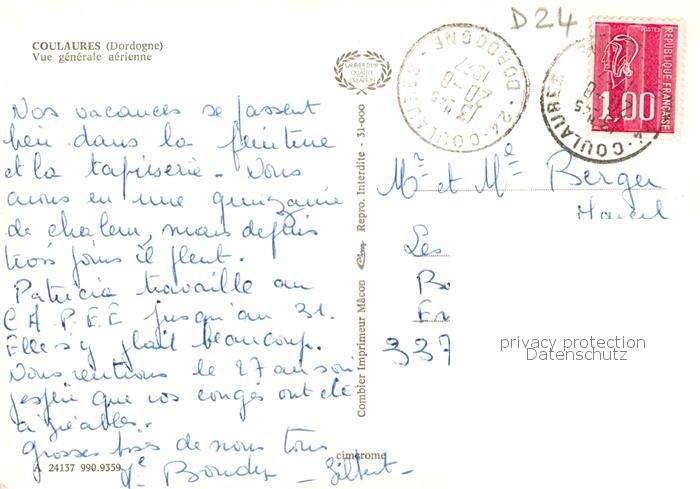 D24
COULAURES (Dordogne)
Vue générale aérienne
LAURIER D'OR
DE LA QUALITE
CREATION
24 - COULAURES - DORDOGNE
13 H45
20-8
1977
POSTES
REPUBLIQUE FRANÇAISE
1,00
24 - COULAURES
Nos vacances se passent
bien dans la peinture
et la tapisserie - Nous
avons eu une quinzaine
de chaleur, mais depuis
trois jours il pleut.
Patricia travaille au
C A P E E jusqu'au 31.
Elle s'y plait beaucoup.
Nous rentrons le 27 au soir
j'espère que vos congés ont été
agréables.
Grosses bises de nous tous
Gilbert -
Mr et Me Berger
Marcel
Les
337
privacy protection
Datenschutz
Combier Imprimeur Mâcon Cim Repro. Interdite - 31-000
cimcrome
A 24137 990.9359